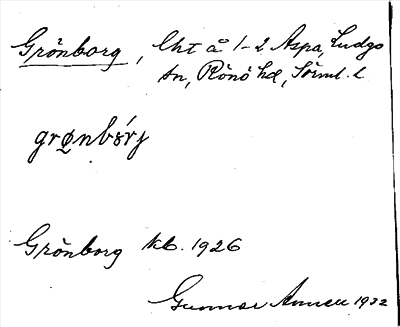 Grönborg, lht å 1-2 Aspa, Ludgo
sn, Rönö hd, Sörml. l.
grønbórj
Grönborg kb. 1926
Gunnar 1932